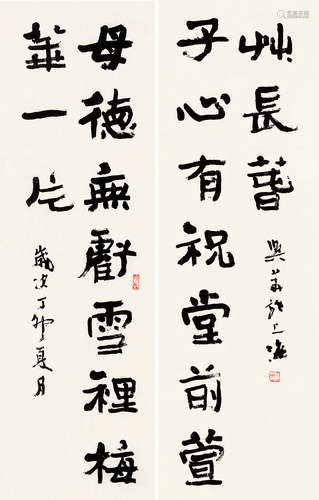 母德無虧雪裡梅
華一片
歲次丁卯夏月
子心有祝堂前萱
艸長萅
於上海